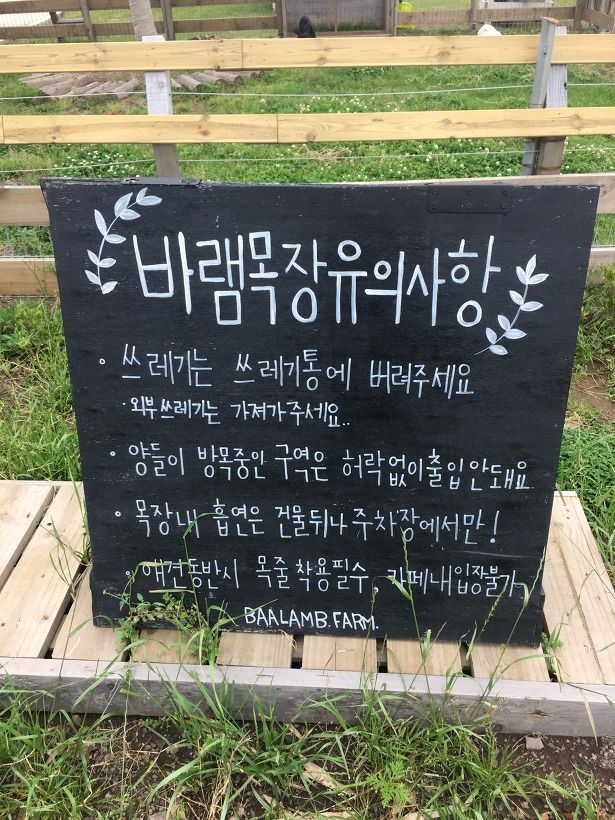 바램목장유의사항
• 쓰레기는 쓰레기통에 버려주세요
· 외부쓰레기는 가져가주세요..
• 양들이 방목중인 구역은 허락없이출입안돼요
• 목장내 흡연은 건물뒤나 주차장에서만!
• 애견동반시 목줄착용필수, 카페내입장불가
BAALAMB.FARM.